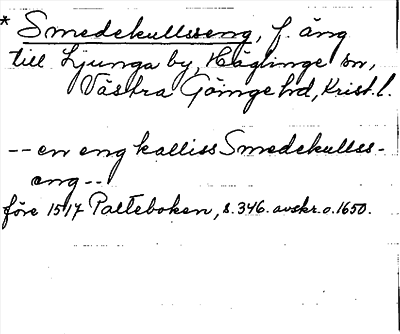 * Smedekullsseng, f. äng
till Ljunga by, Häglinge sn,
Västra Göinge hd, Krist. l.
-- en eng kalliss Smedekullss-
eng --
före 1517 Palteboken, s. 346. avskr. o. 1650.